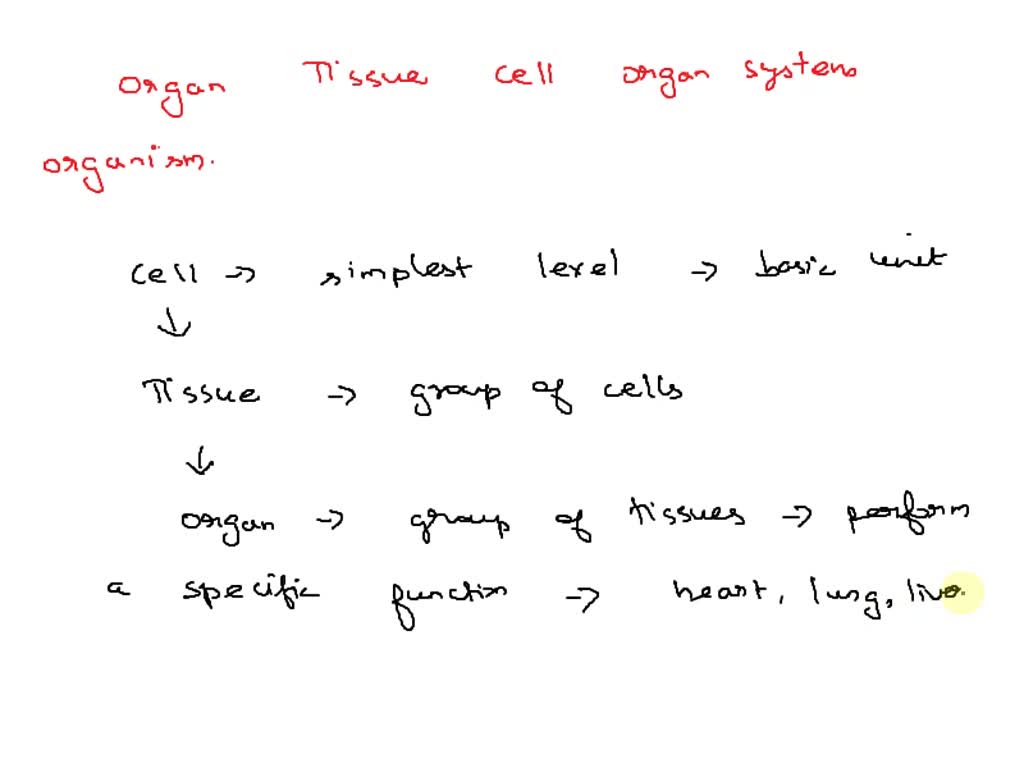 organ Tissue cell organ system
organism.
cell → simplest level → basic unit
↓
Tissue → group of cells
↓
organ → group of tissues → perform
a specific function → heart, lung, live